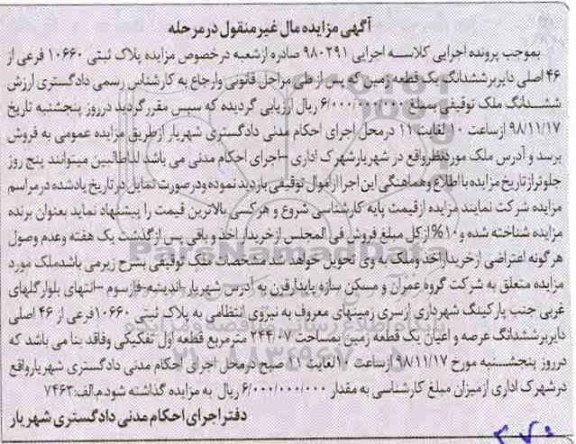 آگهی مزایده مال غیر منقول در مرحله
بموجب پرونده اجرایی کلاسه اجرایی ۹۸۰۲۹۱ صادره از شعبه در خصوص مزایده پلاک ثبتی ۱۰۶۶۰ فرعی از
۴۶ اصلی دایر بر ششدانگ یک قطعه زمین که پس از طی مراحل قانونی وارجاع به کارشناس رسمی دادگستری ارزش
ششدانگ ملک توقیفی بمبلغ ۶/۰۰۰/۰۰۰/۰۰۰ ریال ارزیابی گردیده که سپس مقرر گردید در روز پنجشنبه تاریخ
۹۸/۱۱/۱۷ از ساعت ۱۰ لغایت ۱۱ در محل اجرای احکام مدنی دادگستری شهریار از طریق مزایده عمومی به فروش
برسد و آدرس ملک مورد نظر واقع در شهریار شهرک اداری -اجرای احکام مدنی می باشد لذا طالبین میتوانند پنج روز
جلوتر از تاریخ مزایده با اطلاع وهماهنگی این اجرا از اموال توقیفی بازدید نموده ودر صورت تمایل در تاریخ یاد شده در مراسم
مزایده شرکت نمایند مزایده از قیمت پایه کارشناسی شروع و هر کسی بالاترین قیمت را پیشنهاد نماید بعنوان برنده
مزایده شناخته شده و ۱۰% از کل مبلغ فروش فی المجلس از خریدار اخذ و باقی پس از گذشت یک هفته وعدم وصول
هر گونه اعتراضی از خریدار اخذ وملک به وی تحویل خواهد شد مشخصات ملک توقیفی بشرح زیر می باشد ملک مورد
مزایده متعلق به شرکت گروه عمران و مسکن سازه پایدار قرن به آدرس شهریار -اندیشه -فاز سوم -انتهای بلوار گلهای
غربی جنب پارکینگ شهرداری از سری زمینهای معروف به نیروی انتظامی به پلاک ثبتی ۱۰۶۶۰ فرعی از ۴۶ اصلی
دایر بر ششدانگ عرصه و اعیان یک قطعه زمین بمساحت ۲۴۴/۰۷ متر مربع قطعه اول تفکیکی وفاقد بنا می باشد که
در روز پنجشنبه مورخ ۹۸/۱۱/۱۷ از ساعت ۱۰ لغایت ۱۱ صبح در محل اجرای احکام مدنی دادگستری شهریار واقع
در شهرک اداری از میزان مبلغ کارشناسی به مقدار ۶/۰۰۰/۰۰۰/۰۰۰ ریال به مزایده گذاشته شود م.الف:۷۴۶۳
دفتر اجرای احکام مدنی دادگستری شهریار